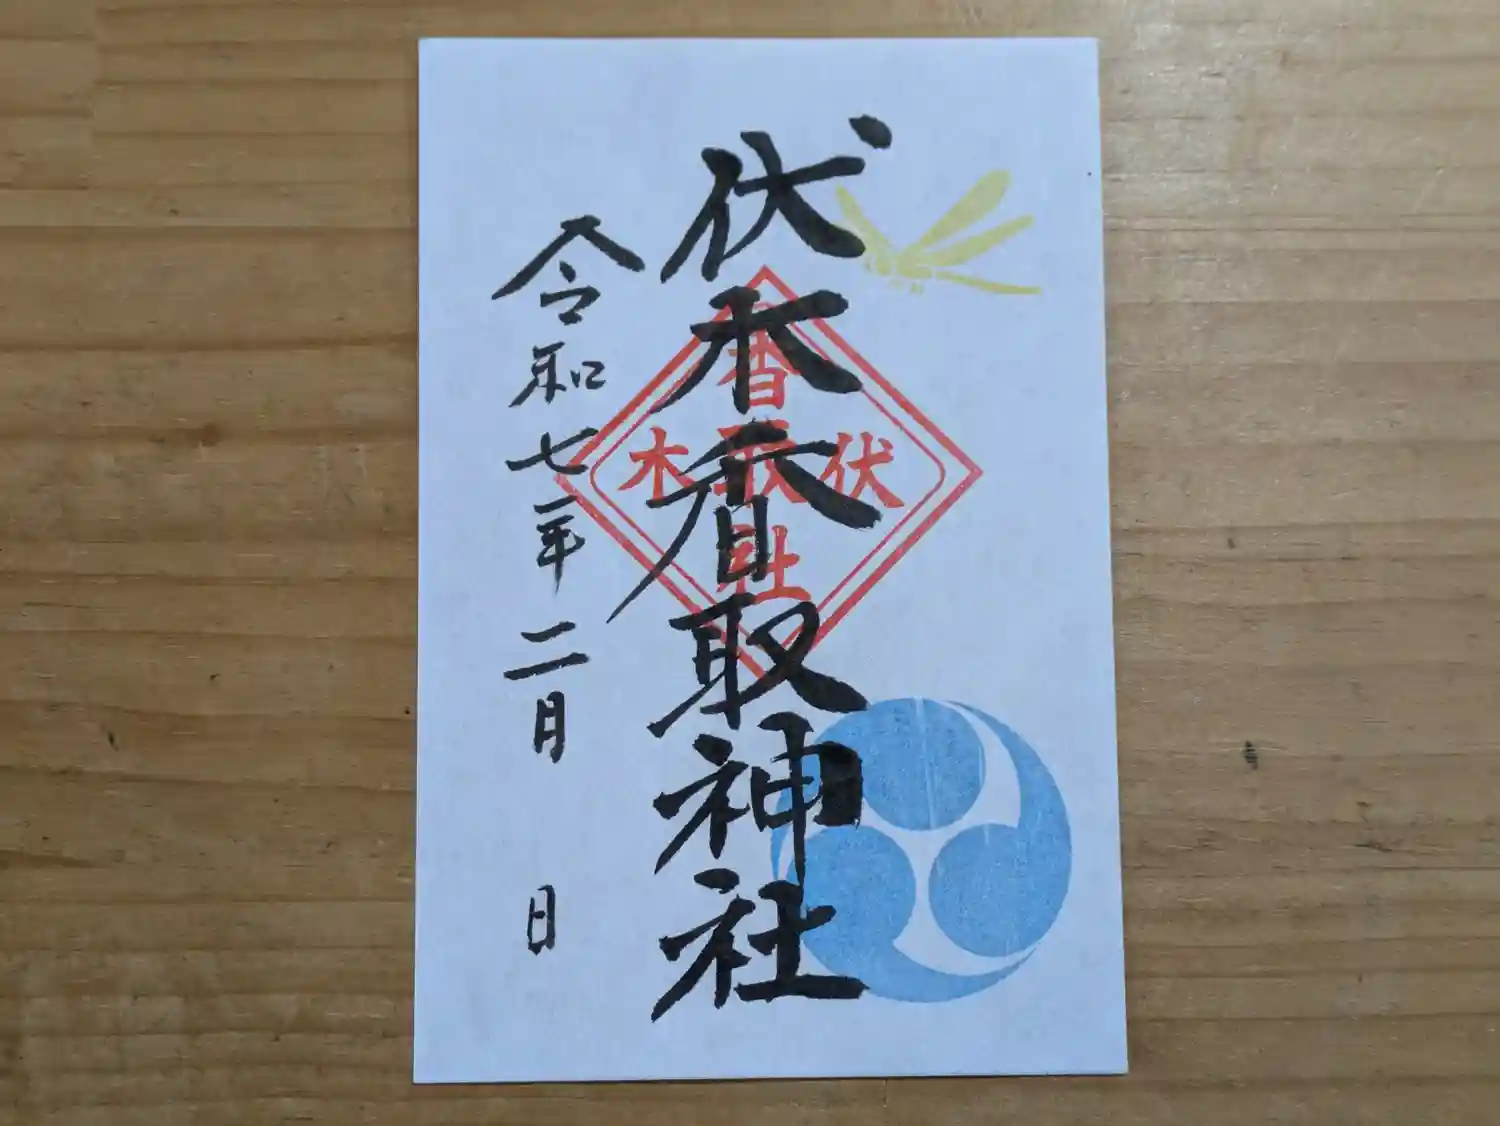 伏木香取神社
香取社
伏木
令和七年二月 日